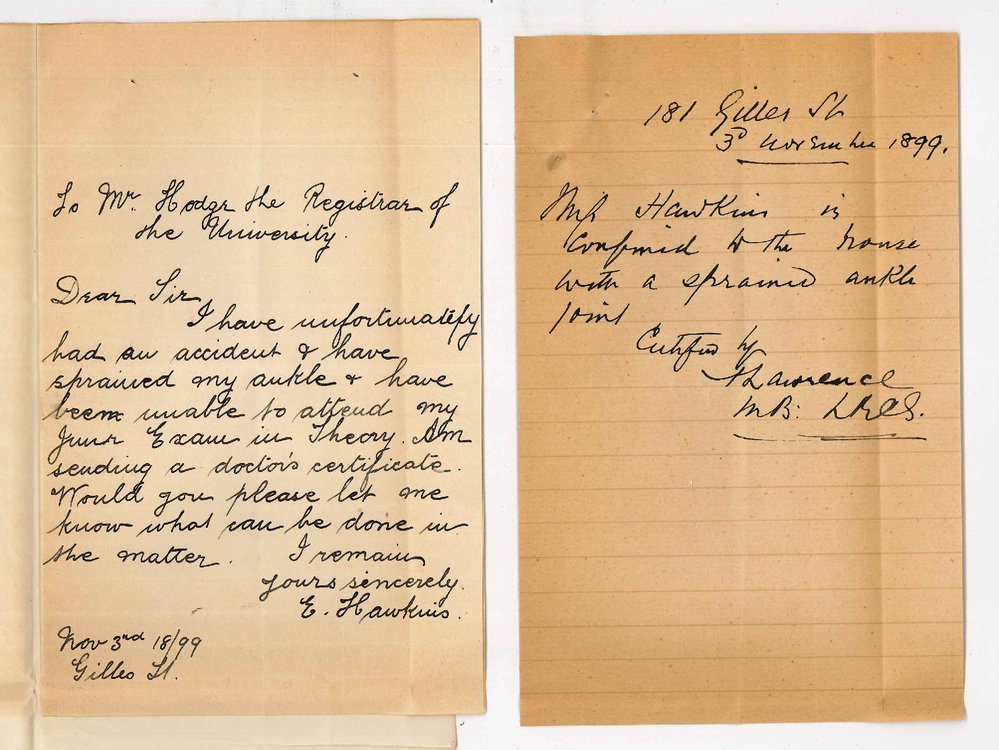 To Mr. Hodge the Registrar of
the University.
Dear Sir
I have unfortunately
had an accident & have
sprained my ankle & have
been unable to attend my
Junr Exam in Theory. Am
sending a doctor's certificate.
Would you please let me
know what can be done in
the matter. I remain
yours sincerely.
E. Hawkins.
Nov 3nd 18/99
Gilles St.
181 Gilles St
3d November 1899.
Miss Hawkins is
Confined to the house
with a sprained ankle
joint
Certified by
Lawrence
MB: